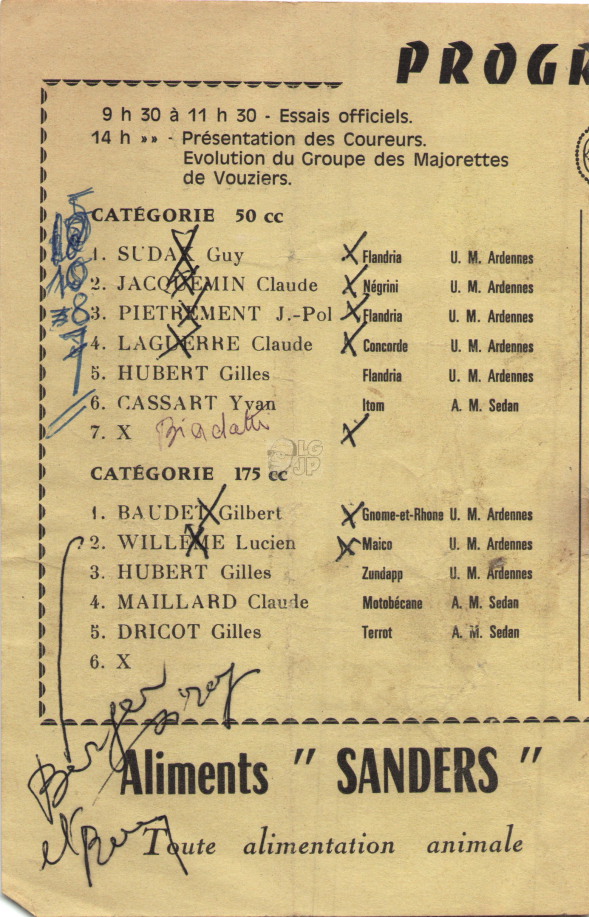 PROGR
9 h 30 à 11 h 30 - Essais officiels.
14 h »» - Présentation des Coureurs.
Evolution du Groupe des Majorettes
de Vouziers.
CATÉGORIE 50 cc
1. SUDAX Guy Flandria U. M. Ardennes
2. JACQUEMIN Claude Négrini U. M. Ardennes
3. PIETREMENT J.-Pol Flandria U. M. Ardennes
4. LAGUERRE Claude Concorde U. M. Ardennes
5. HUBERT Gilles Flandria U. M. Ardennes
6. CASSART Yvan Itom A. M. Sedan
7. X
LG
JP
CATÉGORIE 175 cc
1. BAUDET Gilbert Gnome-et-Rhone U. M. Ardennes
2. WILLEME Lucien Maico U. M. Ardennes
3. HUBERT Gilles Zundapp U. M. Ardennes
4. MAILLARD Claude Motobécane A. M. Sedan
5. DRICOT Gilles Terrot A. M. Sedan
6. X
Aliments " SANDERS "
Toute alimentation animale